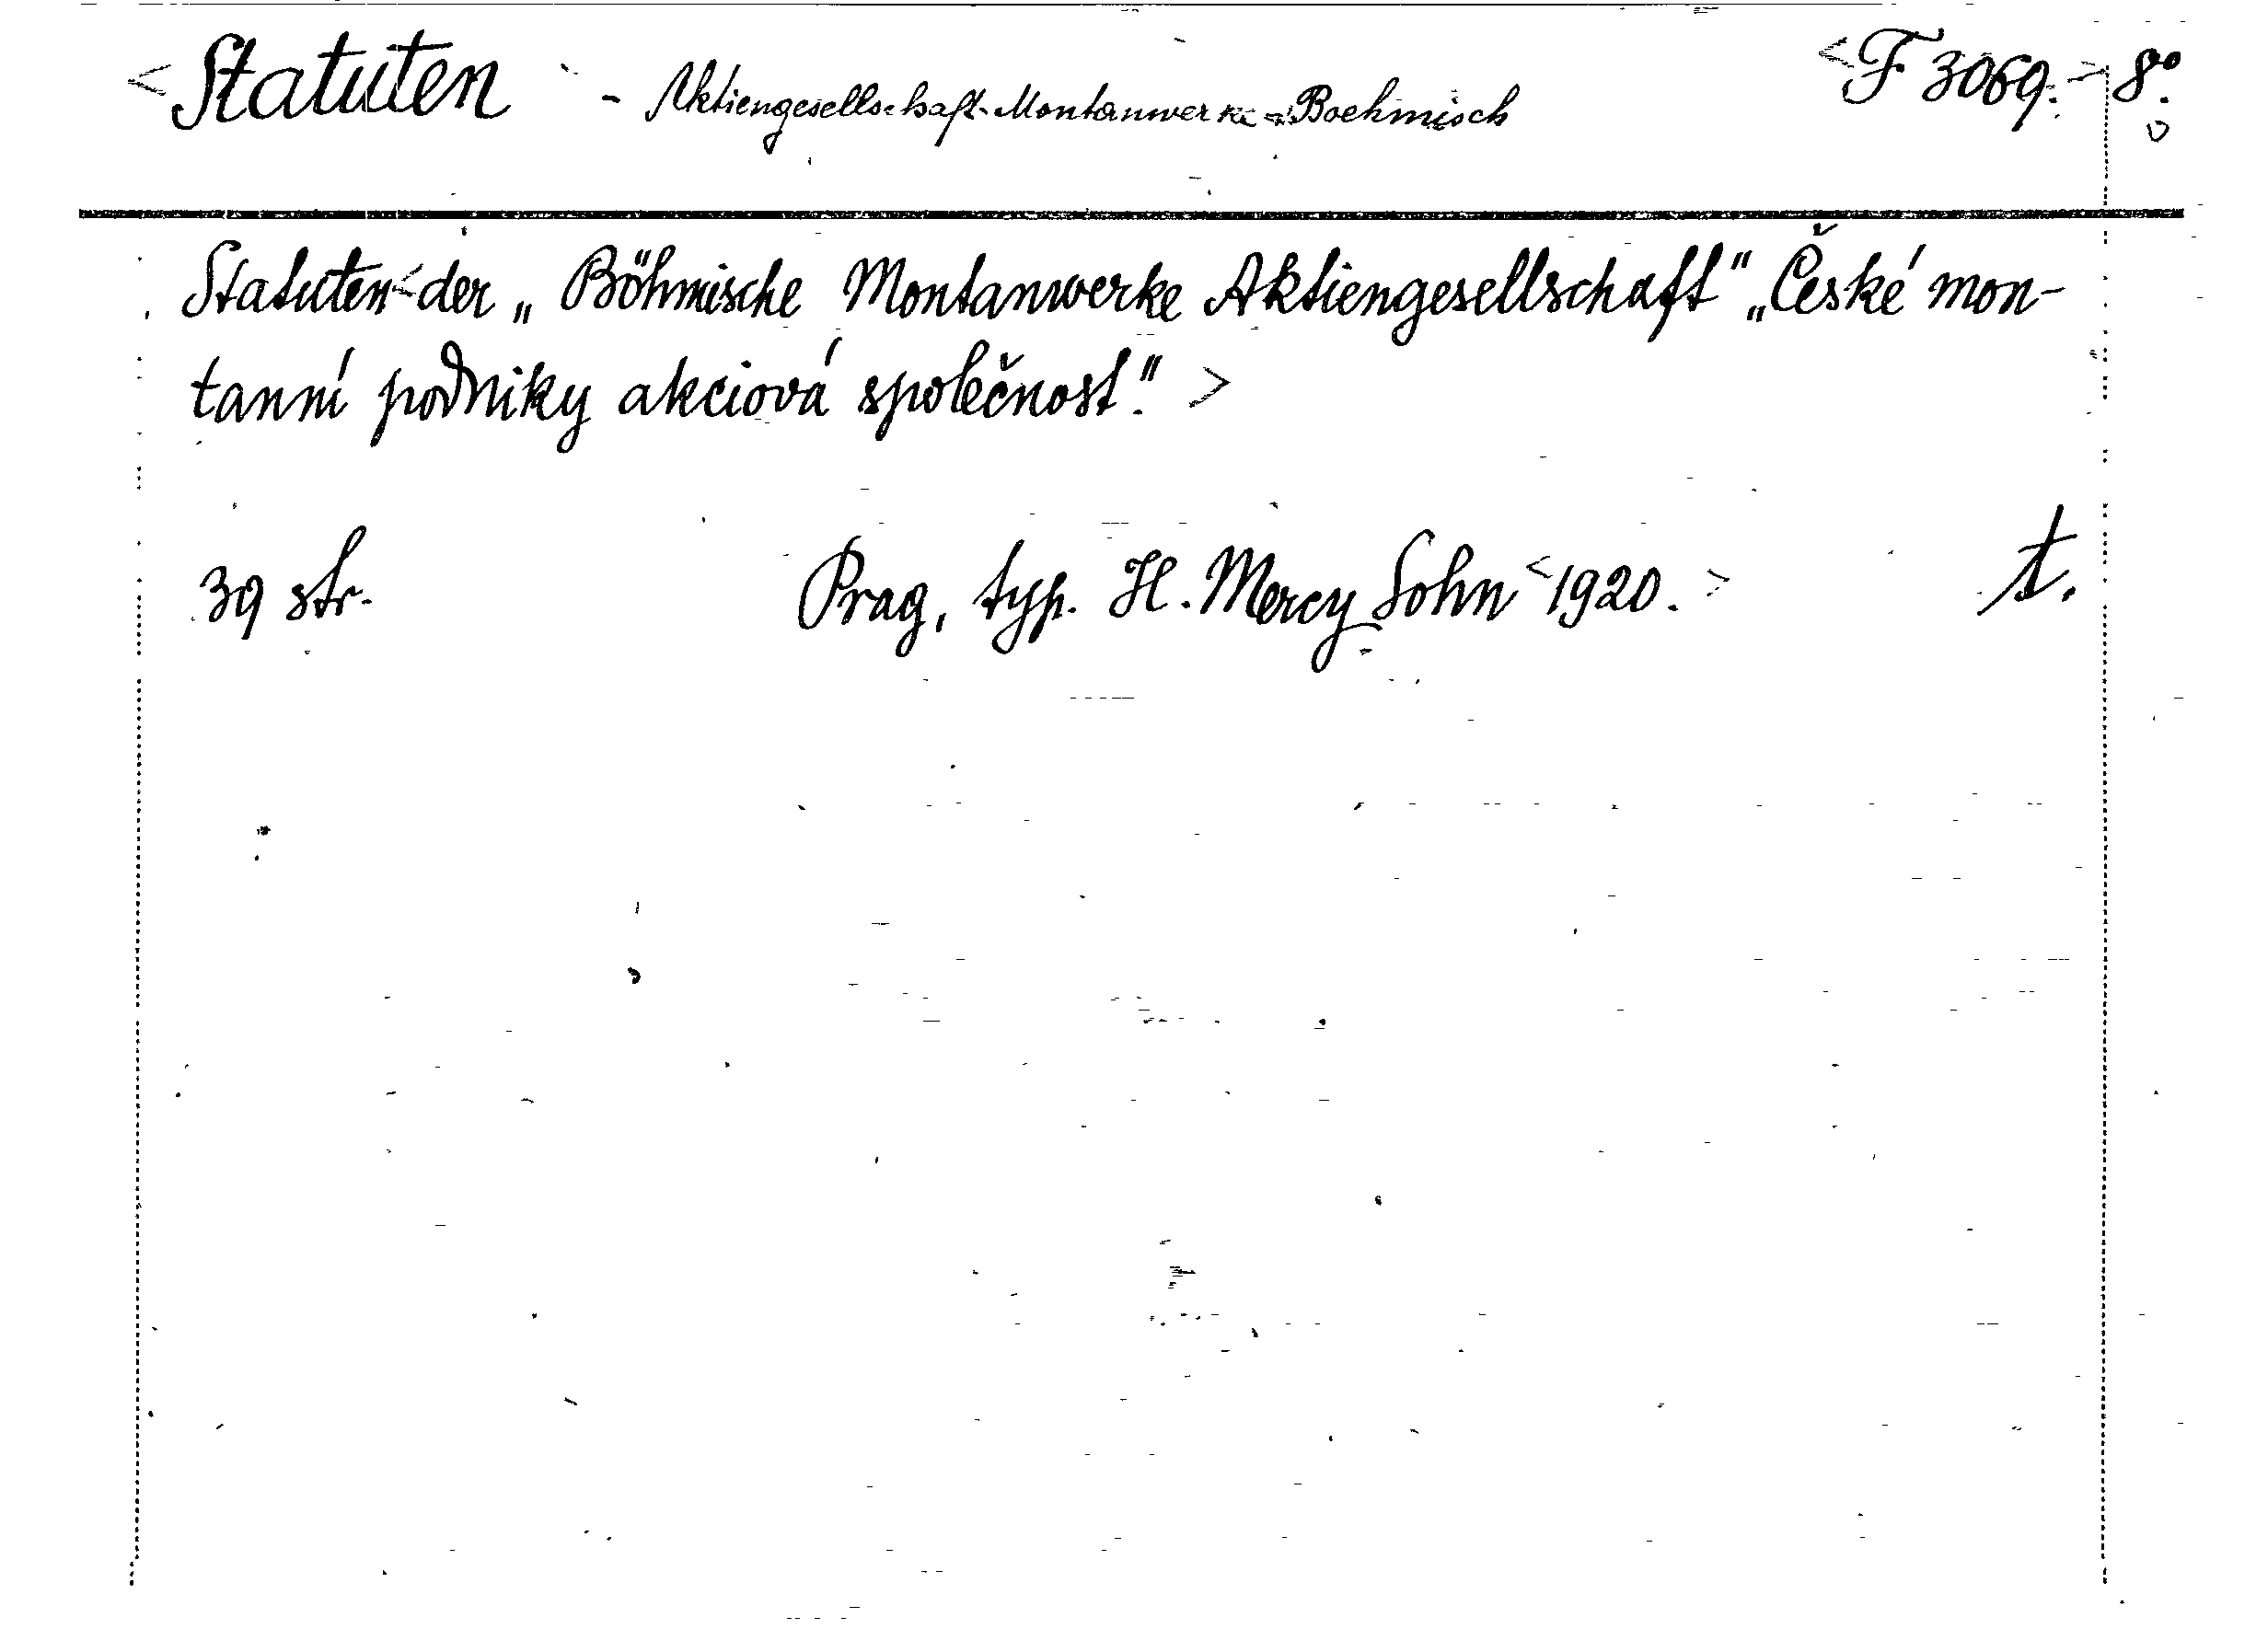 <Statuten - Aktiengesellschaft-Montanwerke-Boehmisch <F 3069.> 8º.
Statuten<der „Böhmische Montanwerke Aktiengesellschaft" „České mon-
tanní podniky akciová společnost". >
39 str. Prag, typ. H. Mercy Sohn <1920.> t.